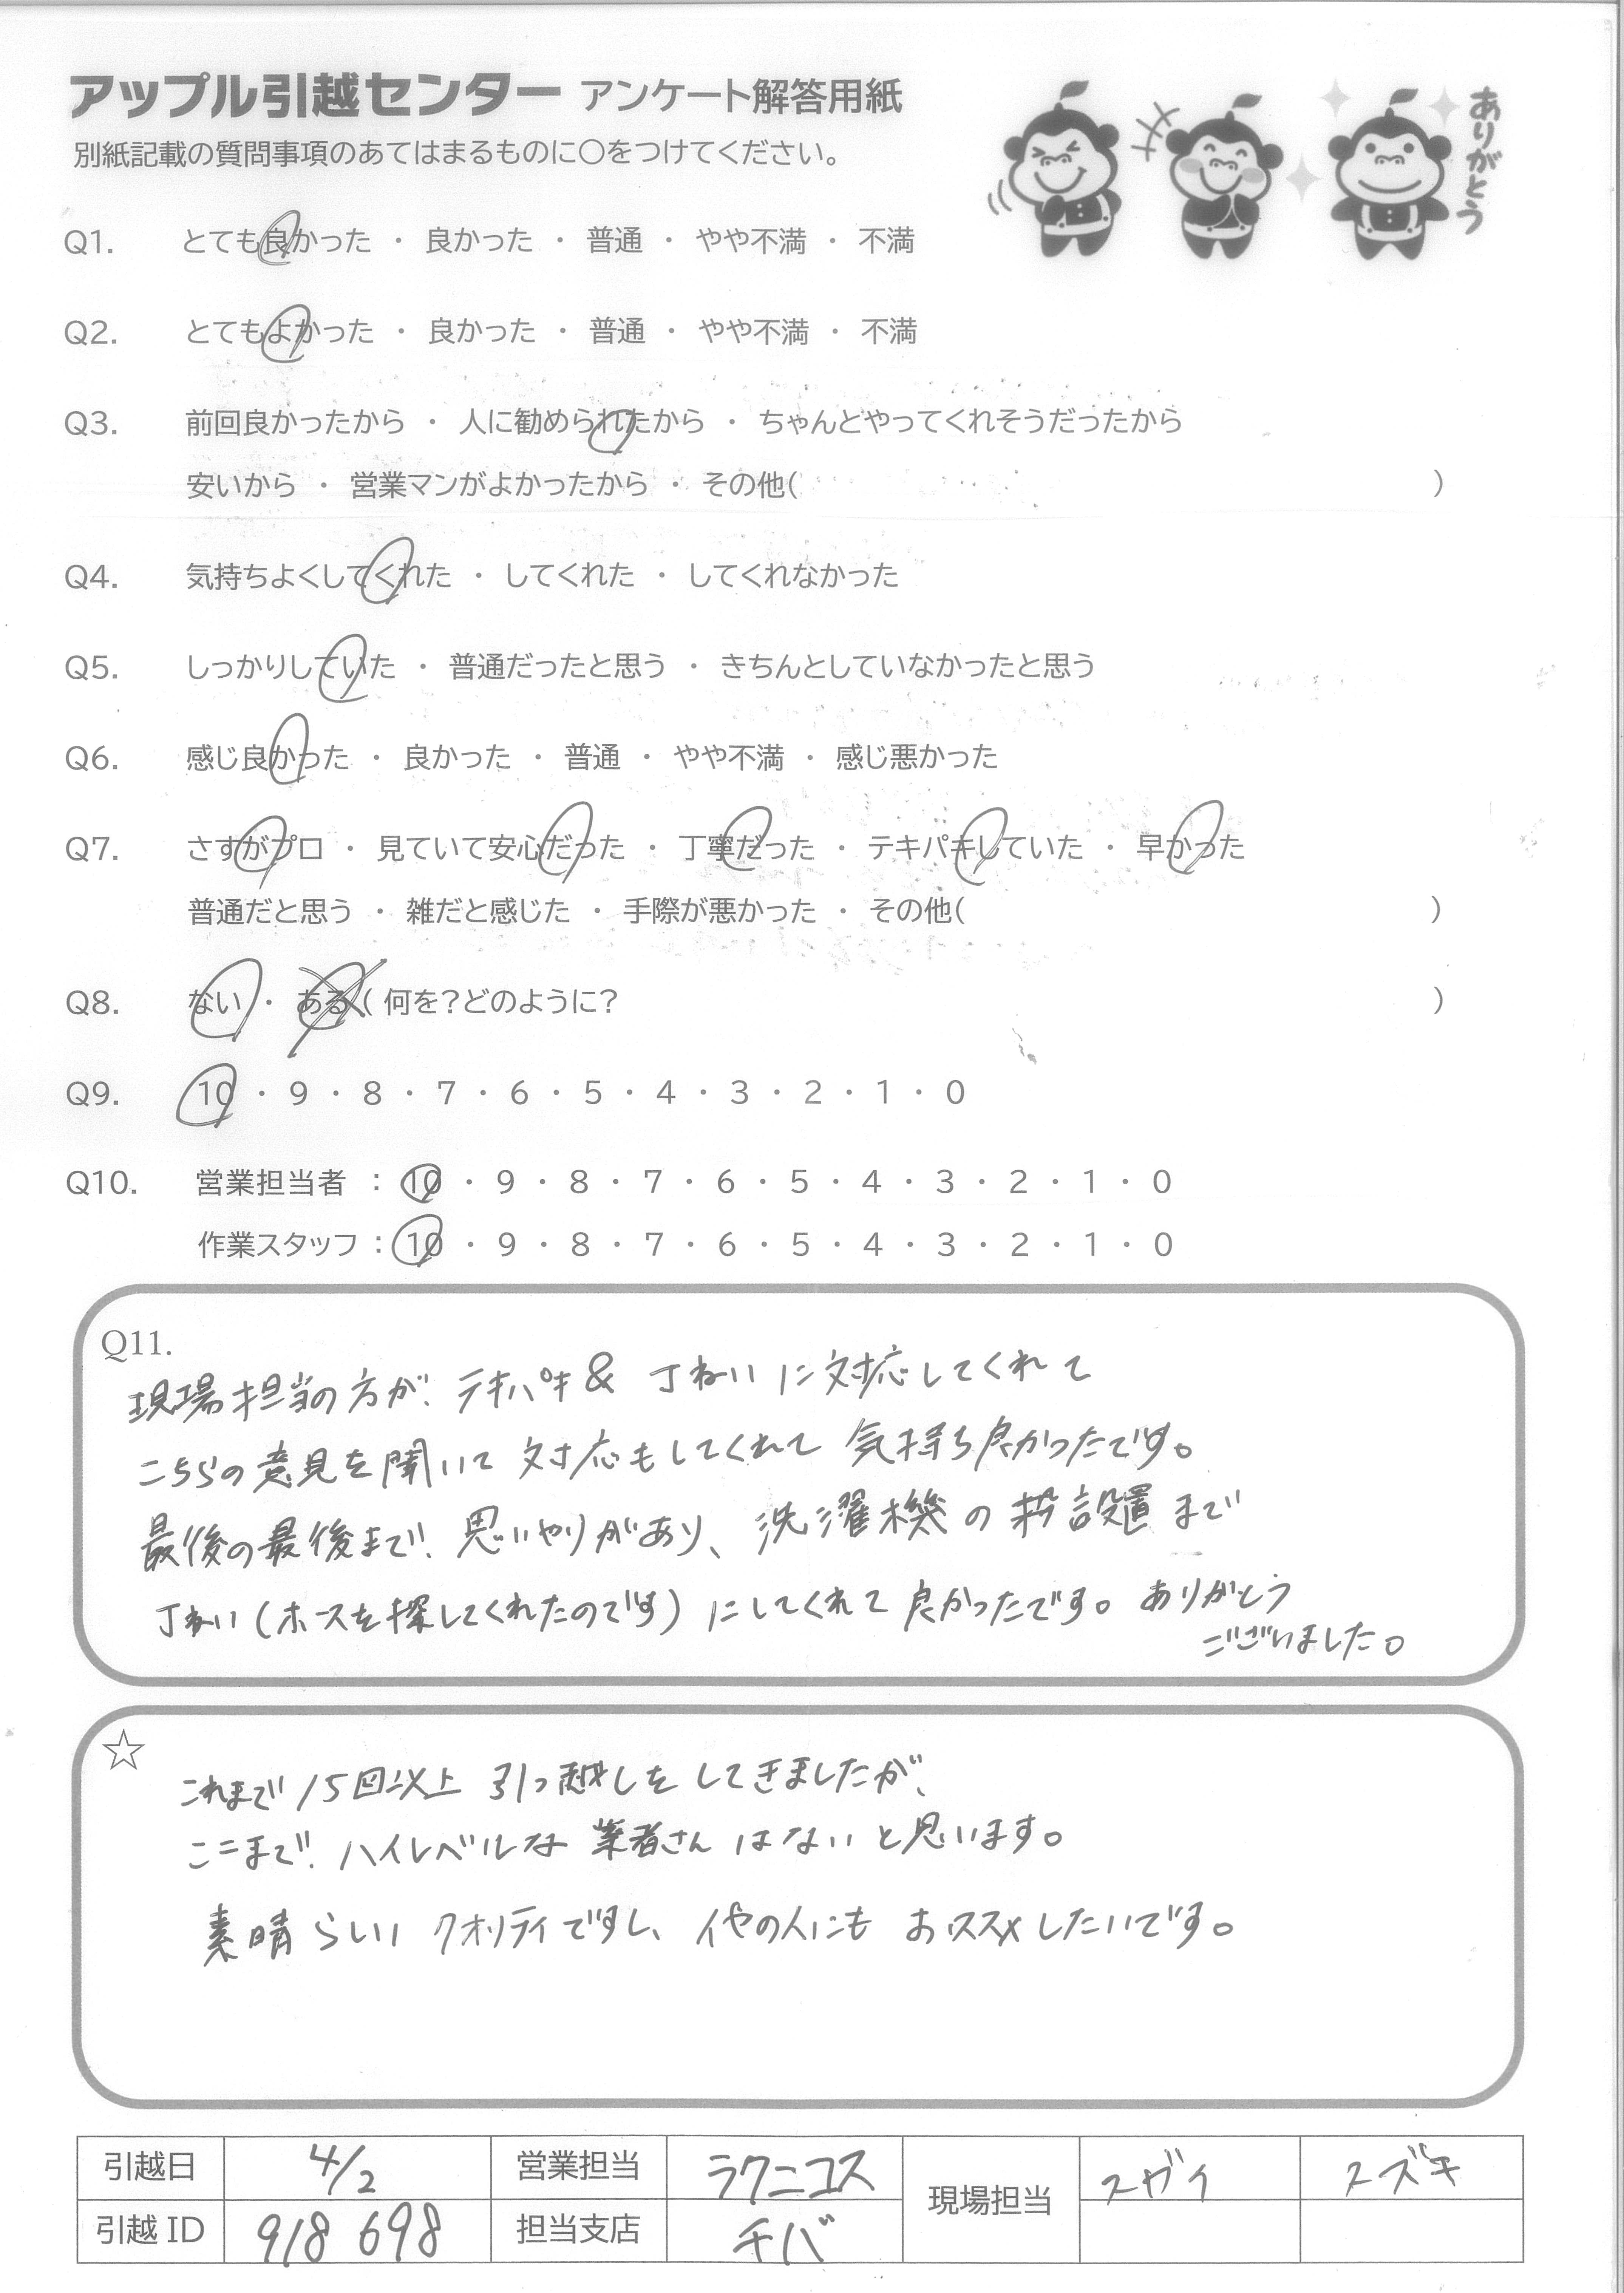 アップル引越センター アンケート解答用紙
別紙記載の質問事項のあてはまるものに〇をつけてください。
ありがとう
Q1. とても良かった ・ 良かった ・ 普通 ・ やや不満 ・ 不満
Q2. とてもよかった ・ 良かった ・ 普通 ・ やや不満 ・ 不満
Q3. 前回良かったから ・ 人に勧められたから ・ ちゃんとやってくれそうだったから
安いから ・ 営業マンがよかったから ・ その他( )
Q4. 気持ちよくしてくれた ・ してくれた ・ してくれなかった
Q5. しっかりしていた ・ 普通だったと思う ・ きちんとしていなかったと思う
Q6. 感じ良かった ・ 良かった ・ 普通 ・ やや不満 ・ 感じ悪かった
Q7. さすがプロ ・ 見ていて安心だった ・ 丁寧だった ・ テキパキしていた ・ 早かった
普通だと思う ・ 雑だと感じた ・ 手際が悪かった ・ その他( )
Q8. ない ・ ある ( 何を？どのように？ )
Q9. 10 ・ 9 ・ 8 ・ 7 ・ 6 ・ 5 ・ 4 ・ 3 ・ 2 ・ 1 ・ 0
Q10. 営業担当者 : 10 ・ 9 ・ 8 ・ 7 ・ 6 ・ 5 ・ 4 ・ 3 ・ 2 ・ 1 ・ 0
作業スタッフ : 10 ・ 9 ・ 8 ・ 7 ・ 6 ・ 5 ・ 4 ・ 3 ・ 2 ・ 1 ・ 0
Q11.
現場担当の方が、テキパキ & 丁ねいに対応してくれて
こちらの意見を聞いて 対応もしてくれて 気持ち良かったです。
最後の最後まで、思いやりがあり、洗濯機の 設置まで
丁ねい(ホースを探してくれたのです)にしてくれて良かったです。ありがとう
ございました。
☆
これまで15回以上 引っ越しをしてきましたが、
ここまで、ハイレベルな業者さんはないと思います。
素晴らしい クオリティですし、他の人にも おススメしたいです。
引越日 4/2 営業担当 ラクニコス 現場担当 スガイ スズキ
引越 ID 918 698 担当支店 チバ